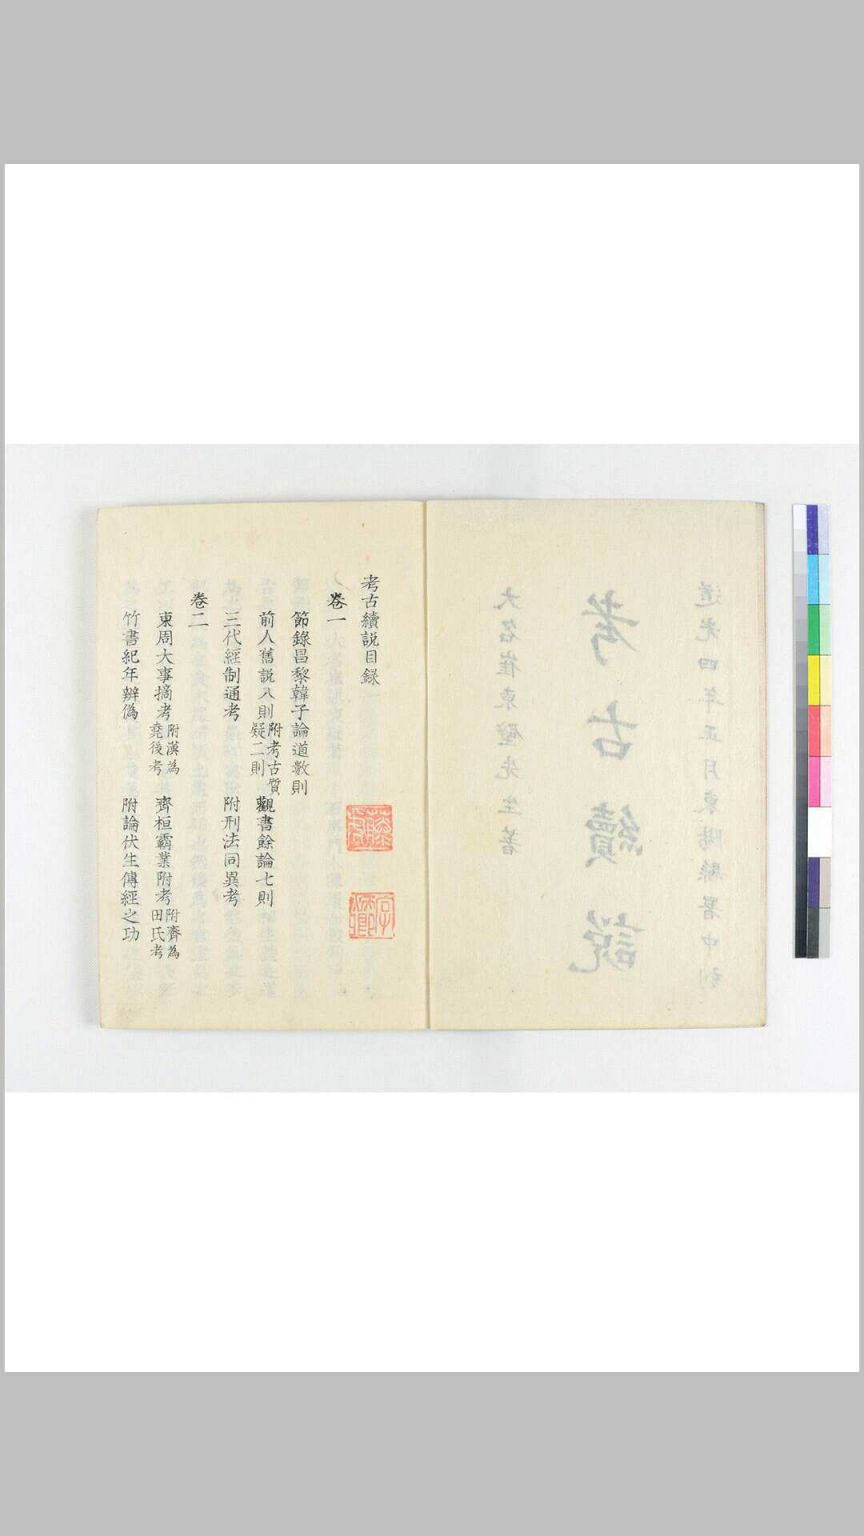 道光四年正月東陽縣署中刻
考古續說
大名崔東壁先生著
考古續說目錄
卷一
節錄昌黎韓子論道數則
前人舊說八則附考古質疑二則 觀書餘論七則
三代經制通考 附刑法同異考
卷二
東周大事摘考附漢為堯後考 齊桓霸業附考附齊為田氏考
竹書紀年辨偽 附論伏生傳經之功